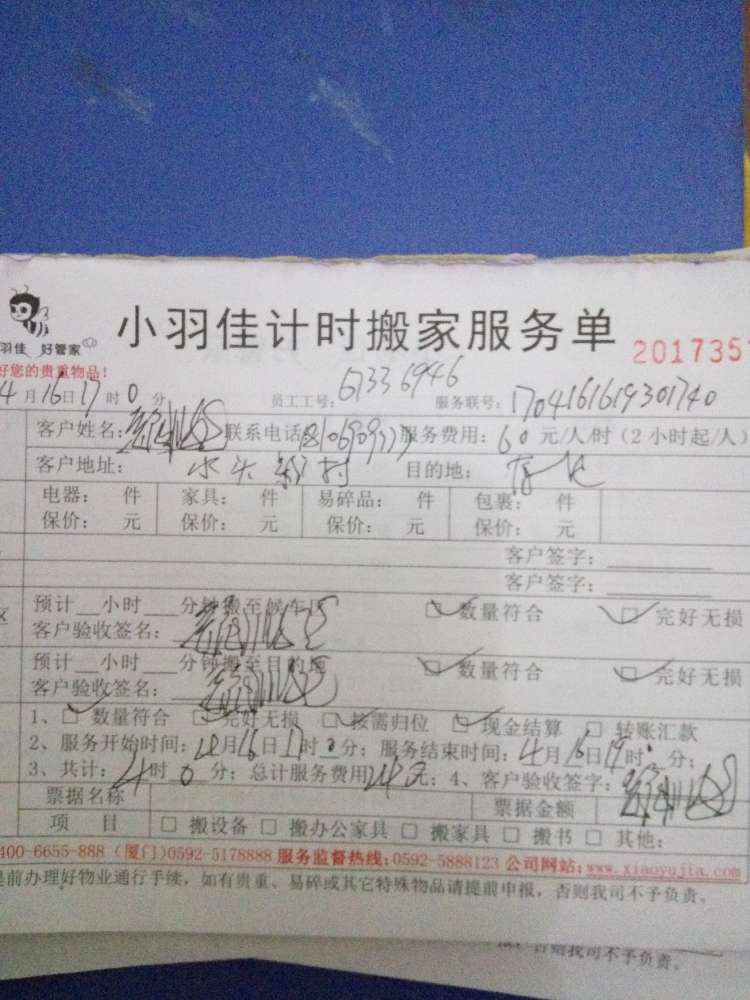 小羽佳计时搬家服务单
羽佳 好管家
2017357
好您的贵重物品！
4月16日17时0分 员工工号：61336946 服务联号：1704161619301740
客户姓名： 联系电话 服务费用：60元/人/时（2小时起/人）
客户地址：水头 村 目的地：
电器： 件 家具： 件 易碎品： 件 包裹： 件
保价： 元 保价： 元 保价： 元 保价： 元
客户签字：
客户签字：
预计__小时___分钟搬至候车区 □数量符合 □完好无损
客户验收签名：
预计__小时___分钟搬至目的地 □数量符合 □完好无损
客户验收签名：
1、□数量符合 □完好无损 □按需归位 □现金结算 □转账汇款
2、服务开始时间：4月16日17时0分；服务结束时间：4月16日19时0分；
3、共计：4时0分；总计服务费用 元；4、客户验收签字：
票据名称 票据金额
项 目 □搬设备 □搬办公家具 □搬家具 □搬书 □其他：
400-6655-888（厦门）0592-5178888 服务监督热线：0592-5888123 公司网站：www.xiaoyujia.com
是前办理好物业通行手续，如有贵重、易碎或其它特殊物品请提前申报，否则我司不予负责。
否则我司不予负责。